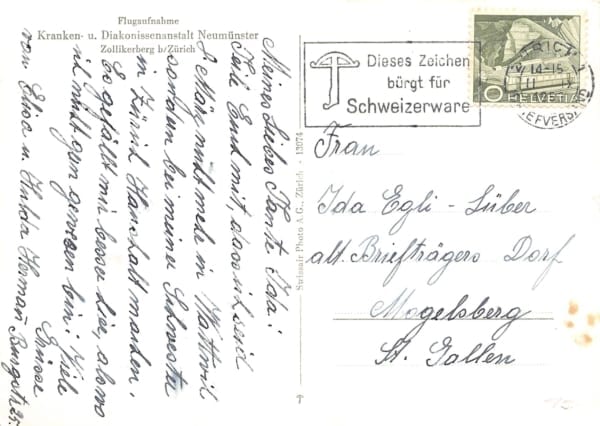 Flugaufnahme
Kranken- u. Diakonissenanstalt Neumünster
Zollikerberg b/Zürich
Meine Liebe Tante Ida!
Teile Euch mit, dass ich seid
5. März nicht mehr in Wattwil
sondern bei meiner Schwester
in Zürich Haushalt machen.
Es gefällt mir besser hier, als wo
ich mit gewesen bin! Viele
Grüsse
von Elisa u. Hulda
Burgstr. 25.
Swissair Photo A.G., Zürich • 13074
Dieses Zeichen
bürgt für
Schweizerware
HELVETIA
Frau
Ida Egli - Lüber
alt. Briefträgers Dorf
Mogelsberg
St. Gallen